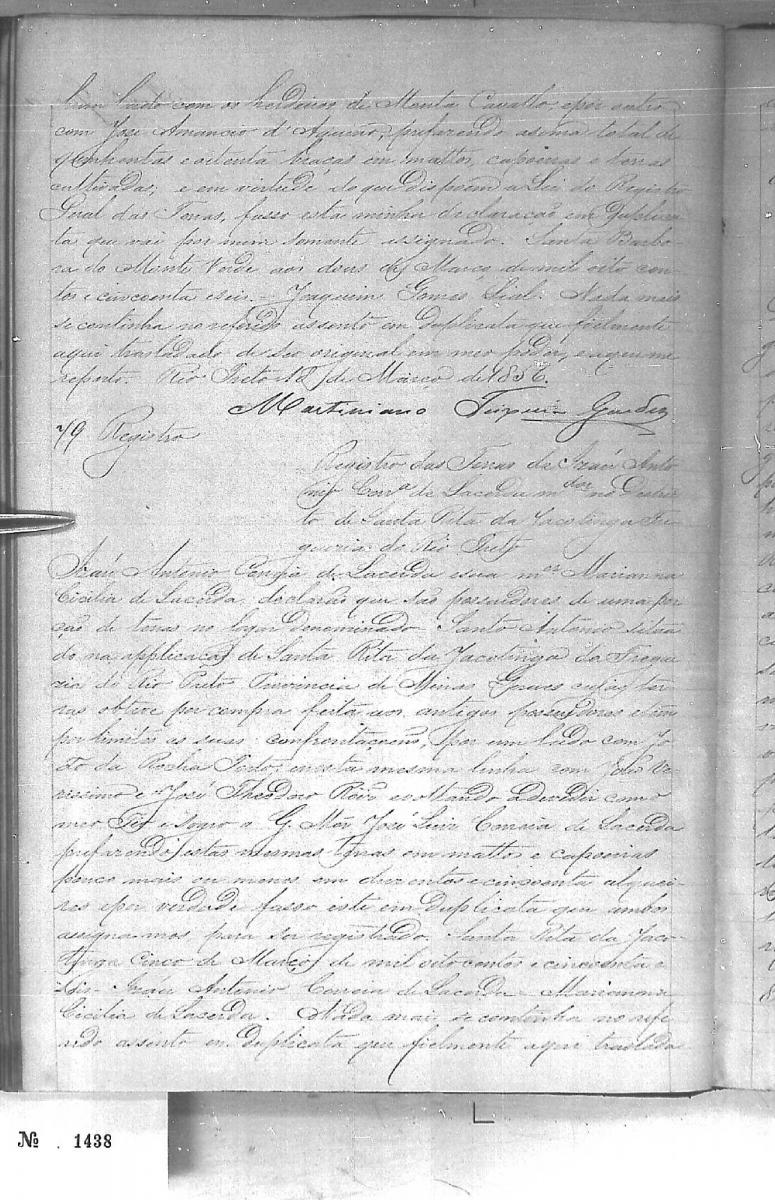 hum lado com os herdeiros de Monta Cavallo, epor outro
com José Amancio d'Aquino, prefazendo asoma total de
quinhentas e oitenta braças em mattos, capoeiras e terras
cultivadas; e em virtude do que dispoem a Lei do Registro
Geral das Terras, fasso esta minha declaração em Duplica
ta que vai por mim somente assignado. Santa Barbo
ra do Monte Verde aos dous de Março de mil oito cen
tos e cincoenta eseis. - Joaquim Gomes Leal. Nada mais
se continha no referido assento em duplicata que fielmente
aqui trasladado de seo original em meo poder, eaque me
reporto. Rio Preto 18 de Março de 1856.
Martiniano Teixeira Guedes
79 Registro
Registro das Terras de Izaú Anto
nio Corrª de Lacerda mdor no Destri
to de Santa Rita da Jacotinga Fre
gueria do Rio Preto
Izaú Antonio Correia de Lacerda esua mer Marianna
Cicilia de Lacerda, declarão que são possuidores de uma por
ção de terras no logar denominado Santo Antonio situa
do na applicação de Santa Rita da Jacotinga da Fregue
zia do Rio Preto Provincia de Minas Geraes cujas ter
ras obteve por compra feita aos antigos possuidores e tem
por limites as suas confrontaçoens, por um lado com Jo
ão da Rocha Porto; enesta mesma linha com João Ve
rissimo e José Theodoro Reis evoltando adevedir com o
meo Tio e Sogro o G. Mor José Luis Correia de Lacerda
prefazendo estas mesmas terras em matto e capoeiras
pouco mais ou menos em duzentos ecincoenta alquei
res epor verdade fasso este em duplicata que ambos
assignamos para ser registrado. Santa Rita da Jaco
tinga Cinco de Março de mil oito centos e cincoenta e
seis - Izaú Antonio Correia de Lacerda - Marianna
Cicilia de Lacerda. Nada mais se continha no refe
rido assento em duplicata que fielmente aqui traslada
№ . 1438